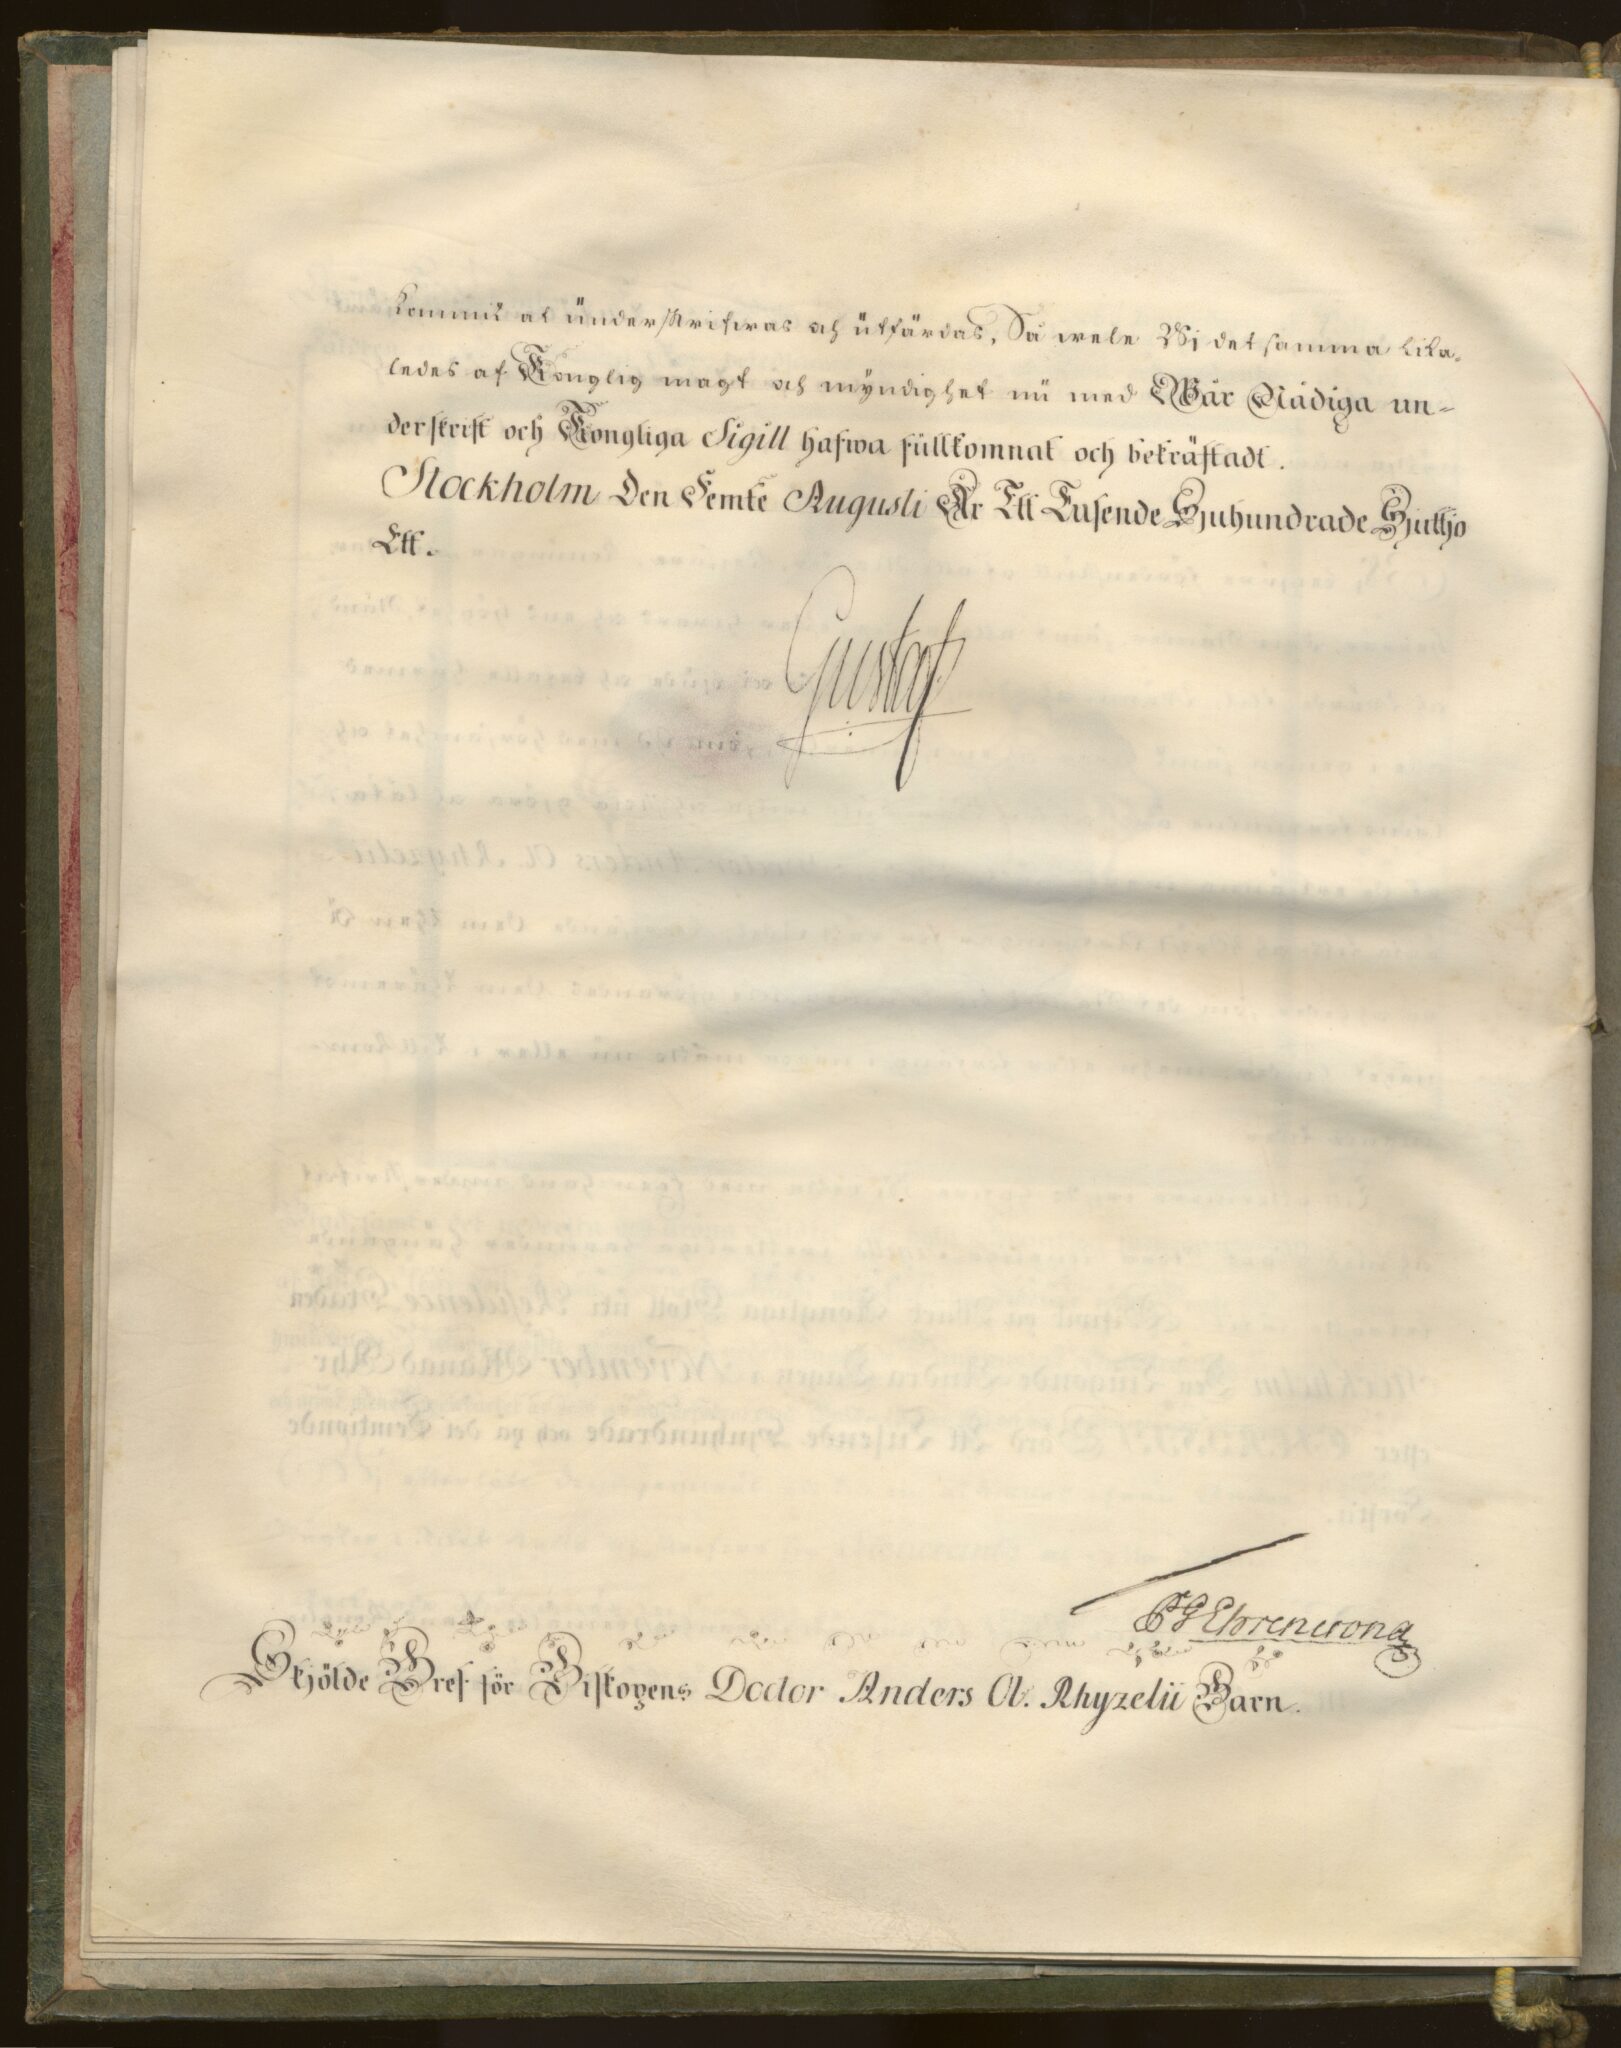 kommit at underskrifwas och utfärdas, Så wele Wi det samma lika-
ledes af Konglig magt och myndighet nu med Wår Nådiga un-
derskrift och Kongliga Sigill hafwa fullkomnat och bekräftadt.
Stockholm Den Femte Augusti År Ett Tusende Sjuhundrade Sjuttjo
Ett.
Gustaf
Ehrencrona
Skjölde Bref för Biskopens Doctor Anders Ol. Rhyzelii Barn.